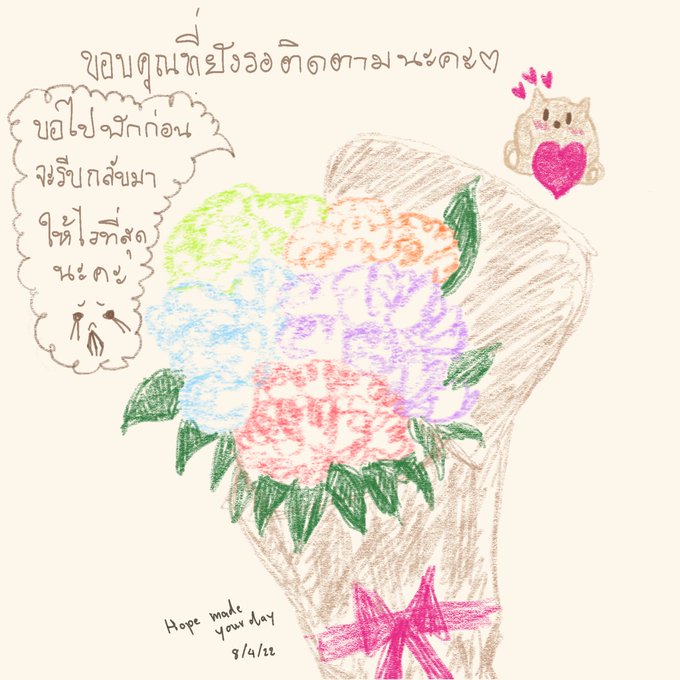 ขอบคุณที่ยังรอติดตามนะคะ♡
ขอไปพักก่อน
จะรีบกลับมา
ให้ไวที่สุด
นะคะ
Hope made
your day
8/4/22